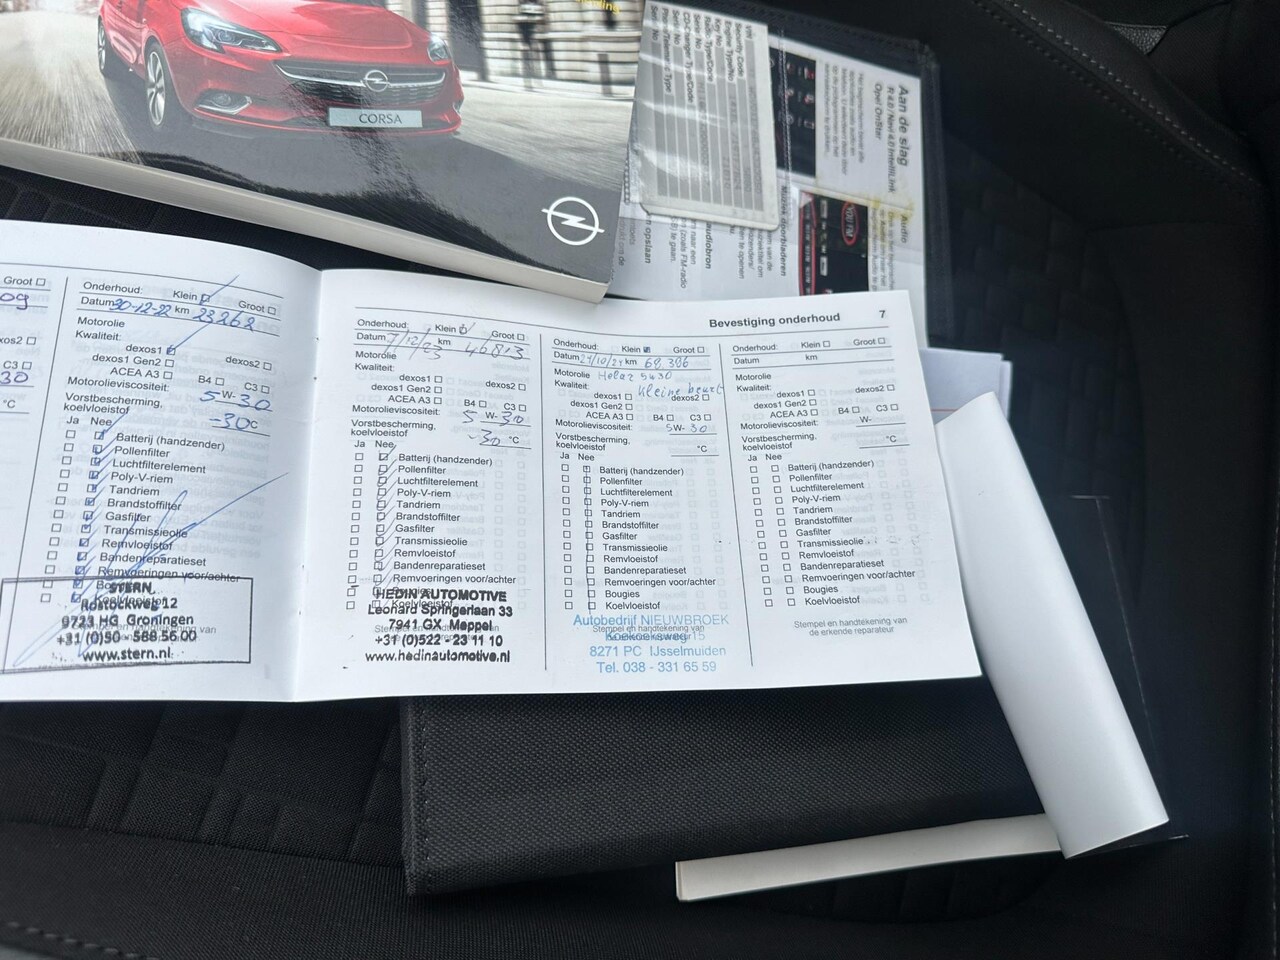 CORSA
Aan de slag
R 4.0 / Navi 4.0 IntelliLink
Opel OnStar
Audio
Muziek doorbladeren
Security Code
Groot
30
°C
Onderhoud: Klein Groot
Datum 30-12-22 km 23262
Motorolie
Kwaliteit:
dexos1 dexos2
dexos1 Gen2
ACEA A3 B4 C3
Motorolieviscositeit: 5 W-30
Vorstbescherming, koelvloeistof -30°C
Ja Nee
Batterij (handzender)
Pollenfilter
Luchtfilterelement
Poly-V-riem
Tandriem
Brandstoffilter
Gasfilter
Transmissieolie
Remvloeistof
Bandenreparatieset
Remvoeringen voor/achter
STERN
Rostockweg 12
9723 HG Groningen
+31 (0)50 - 588 56 00
www.stern.nl
Bevestiging onderhoud 7
Onderhoud: Klein Groot
Datum 7/12/23 km 46813
Motorolie
Kwaliteit:
dexos1 dexos2
dexos1 Gen2
ACEA A3 B4 C3
Motorolieviscositeit: 5 W-30
Vorstbescherming, koelvloeistof -30 °C
Ja Nee
Batterij (handzender)
Pollenfilter
Luchtfilterelement
Poly-V-riem
Tandriem
Brandstoffilter
Gasfilter
Transmissieolie
Remvloeistof
Bandenreparatieset
Remvoeringen voor/achter
Bougies
Koelvloeistof
HEDIN AUTOMOTIVE
Leonard Springerlaan 33
7941 GX Meppel
+31 (0)522 - 23 11 10
www.hedinautomotive.nl
Onderhoud: Klein Groot
Datum 21/10/24 km 68.386
Motorolie 5w30
Kwaliteit: Kleine beurt
dexos1 dexos2
dexos1 Gen2
ACEA A3 B4 C3
Motorolieviscositeit: 5W-30
Vorstbescherming, koelvloeistof °C
Ja Nee
Batterij (handzender)
Pollenfilter
Luchtfilterelement
Poly-V-riem
Tandriem
Brandstoffilter
Gasfilter
Transmissieolie
Remvloeistof
Bandenreparatieset
Remvoeringen voor/achter
Bougies
Koelvloeistof
Autobedrijf NIEUWBROEK
Stempel en handtekening van
Koekoeksweg 15
8271 PC IJsselmuiden
Tel. 038 - 331 65 59
Onderhoud: Klein Groot
Datum km
Motorolie
Kwaliteit:
dexos1 dexos2
dexos1 Gen2
ACEA A3 B4 C3
Motorolieviscositeit: W-
Vorstbescherming, koelvloeistof °C
Ja Nee
Batterij (handzender)
Pollenfilter
Luchtfilterelement
Poly-V-riem
Tandriem
Brandstoffilter
Gasfilter
Transmissieolie
Remvloeistof
Bandenreparatieset
Remvoeringen voor/achter
Bougies
Koelvloeistof
Stempel en handtekening van
de erkende reparateur